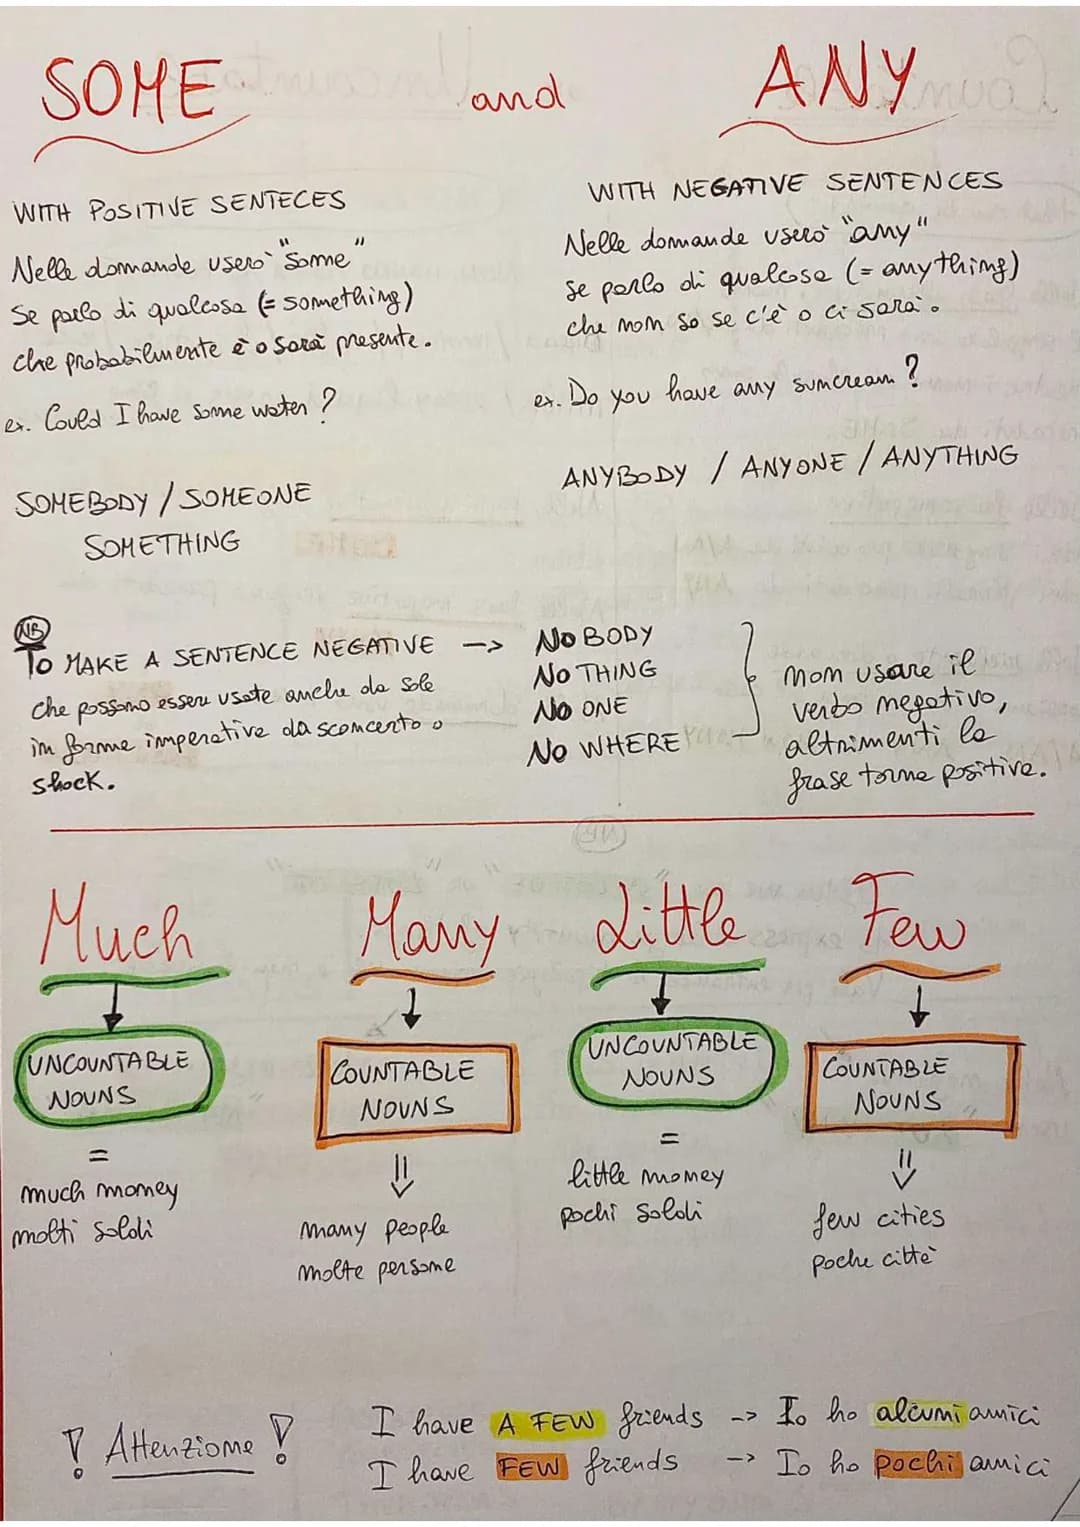 SOME and ANY
WITH POSITIVE SENTECES
Nelle domande userò "some"
se parlo di qualcosa (= something)
che probabilmente è o sarà presente.
ex. Could I have some water?
SOMEBODY / SOMEONE
SOMETHING
WITH NEGATIVE SENTENCES
Nelle domande userò "any"
se parlo di qualcosa (= anything)
che non so se c'è o ci sarà.
ex. Do you have any suncream?
ANYBODY / ANYONE / ANYTHING
NB
TO MAKE A SENTENCE NEGATIVE -->
che possono essere usate anche da sole
in forme imperative da sconcerto o
shock.
NOBODY
NOTHING
NO ONE
NO WHERE
non usare il
verbo negativo,
altrimenti la
frase torna positiva.
Much Many Little Few
UNCOUNTABLE
NOUNS
=
much money
molti soldi
COUNTABLE
NOUNS
=
many people
molte persone
UNCOUNTABLE
NOUNS
=
little money
pochi soldi
COUNTABLE
NOUNS
=
few cities
poche città
! Attenzione !
I have A FEW friends --> Io ho alcuni amici
I have FEW friends --> Io ho pochi amici